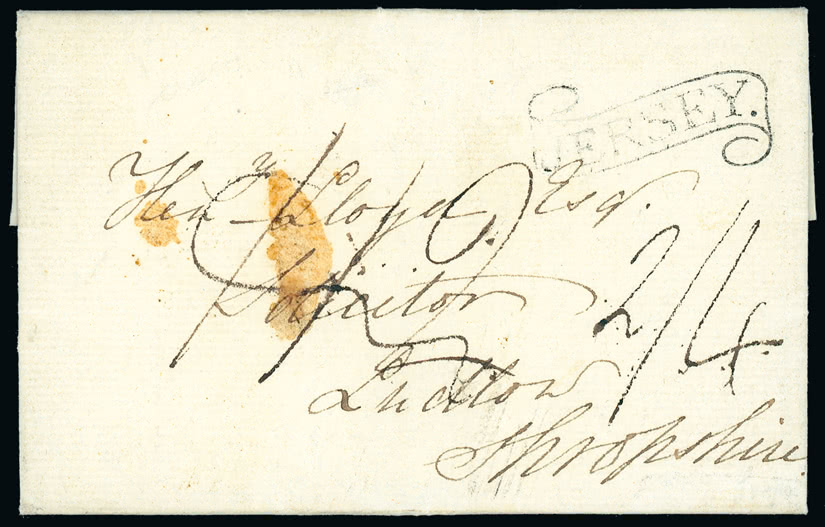 JERSEY.
Henʸ Lloyd Esqr.
Solicitor
2/4
Ludlow
Shropshire